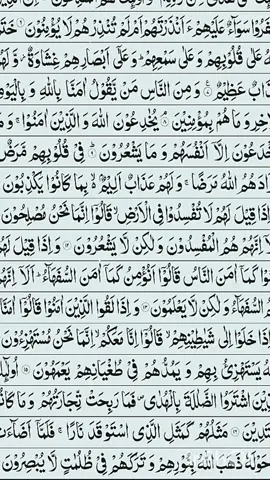 فَرُوْا سَوَآءٌ عَلَيْهِمْ ءَاَنْذَرْتَهُمْ اَمْ لَمْ تُنْذِرْهُمْ لَا يُؤْمِنُوْنَ
عَلٰى قُلُوْبِهِمْ وَ عَلٰى سَمْعِهِمْ ؕ وَ عَلٰٓى اَبْصَارِهِمْ غِشَاوَةٌ ؗ وَّ لَهُ
ذَابٌ عَظِيْمٌ وَ مِنَ النَّاسِ مَنْ يَّقُوْلُ اٰمَنَّا بِاللّٰهِ وَ بِالْيَوْمِ
خِرِ وَ مَا هُمْ بِمُؤْمِنِيْنَ ۘ يُخٰدِعُوْنَ اللّٰهَ وَ الَّذِيْنَ اٰمَنُوْا ۚ وَ مَ
خْدَعُوْنَ اِلَّاۤ اَنْفُسَهُمْ وَ مَا يَشْعُرُوْنَ ؕ فِيْ قُلُوْبِهِمْ مَّرَضٌ
ادَهُمُ اللّٰهُ مَرَضًا ۚ وَ لَهُمْ عَذَابٌ اَلِيْمٌۢ ۙ۬ بِمَا كَانُوْا يَكْذِبُوْنَ
اِذَا قِيْلَ لَهُمْ لَا تُفْسِدُوْا فِي الْاَرْضِ ۙ قَالُوْۤا اِنَّمَا نَحْنُ مُصْلِحُوْنَ
اَلَاۤ اِنَّهُمْ هُمُ الْمُفْسِدُوْنَ وَ لٰكِنْ لَّا يَشْعُرُوْنَ وَ اِذَا قِيْلَ لَهُ
وْا كَمَاۤ اٰمَنَ النَّاسُ قَالُوْۤا اَنُؤْمِنُ كَمَاۤ اٰمَنَ السُّفَهَآءُ ؕ اَلَاۤ اِنَّهُ
السُّفَهَآءُ وَ لٰكِنْ لَّا يَعْلَمُوْنَ وَ اِذَا لَقُوا الَّذِيْنَ اٰمَنُوْا قَالُوْۤا اٰمَنَّا
اِذَا خَلَوْا اِلٰى شَيٰطِيْنِهِمْ ۙ قَالُوْۤا اِنَّا مَعَكُمْ ۙ اِنَّمَا نَحْنُ مُسْتَهْزِءُوْنَ
للّٰهُ يَسْتَهْزِئُ بِهِمْ وَ يَمُدُّهُمْ فِيْ طُغْيَانِهِمْ يَعْمَهُوْنَ اُولٰٓئِ
ذِيْنَ اشْتَرَوُا الضَّلٰلَةَ بِالْهُدٰى ۪ فَمَا رَبِحَتْ تِّجَارَتُهُمْ وَ مَا كَانُ
تَدِيْنَ مَثَلُهُمْ كَمَثَلِ الَّذِي اسْتَوْقَدَ نَارًا ۚ فَلَمَّاۤ اَضَآءَتْ
حَوْلَهٗ ذَهَبَ اللّٰهُ بِنُوْرِهِمْ وَ تَرَكَهُمْ فِيْ ظُلُمٰتٍ لَّا يُبْصِرُوْنَ